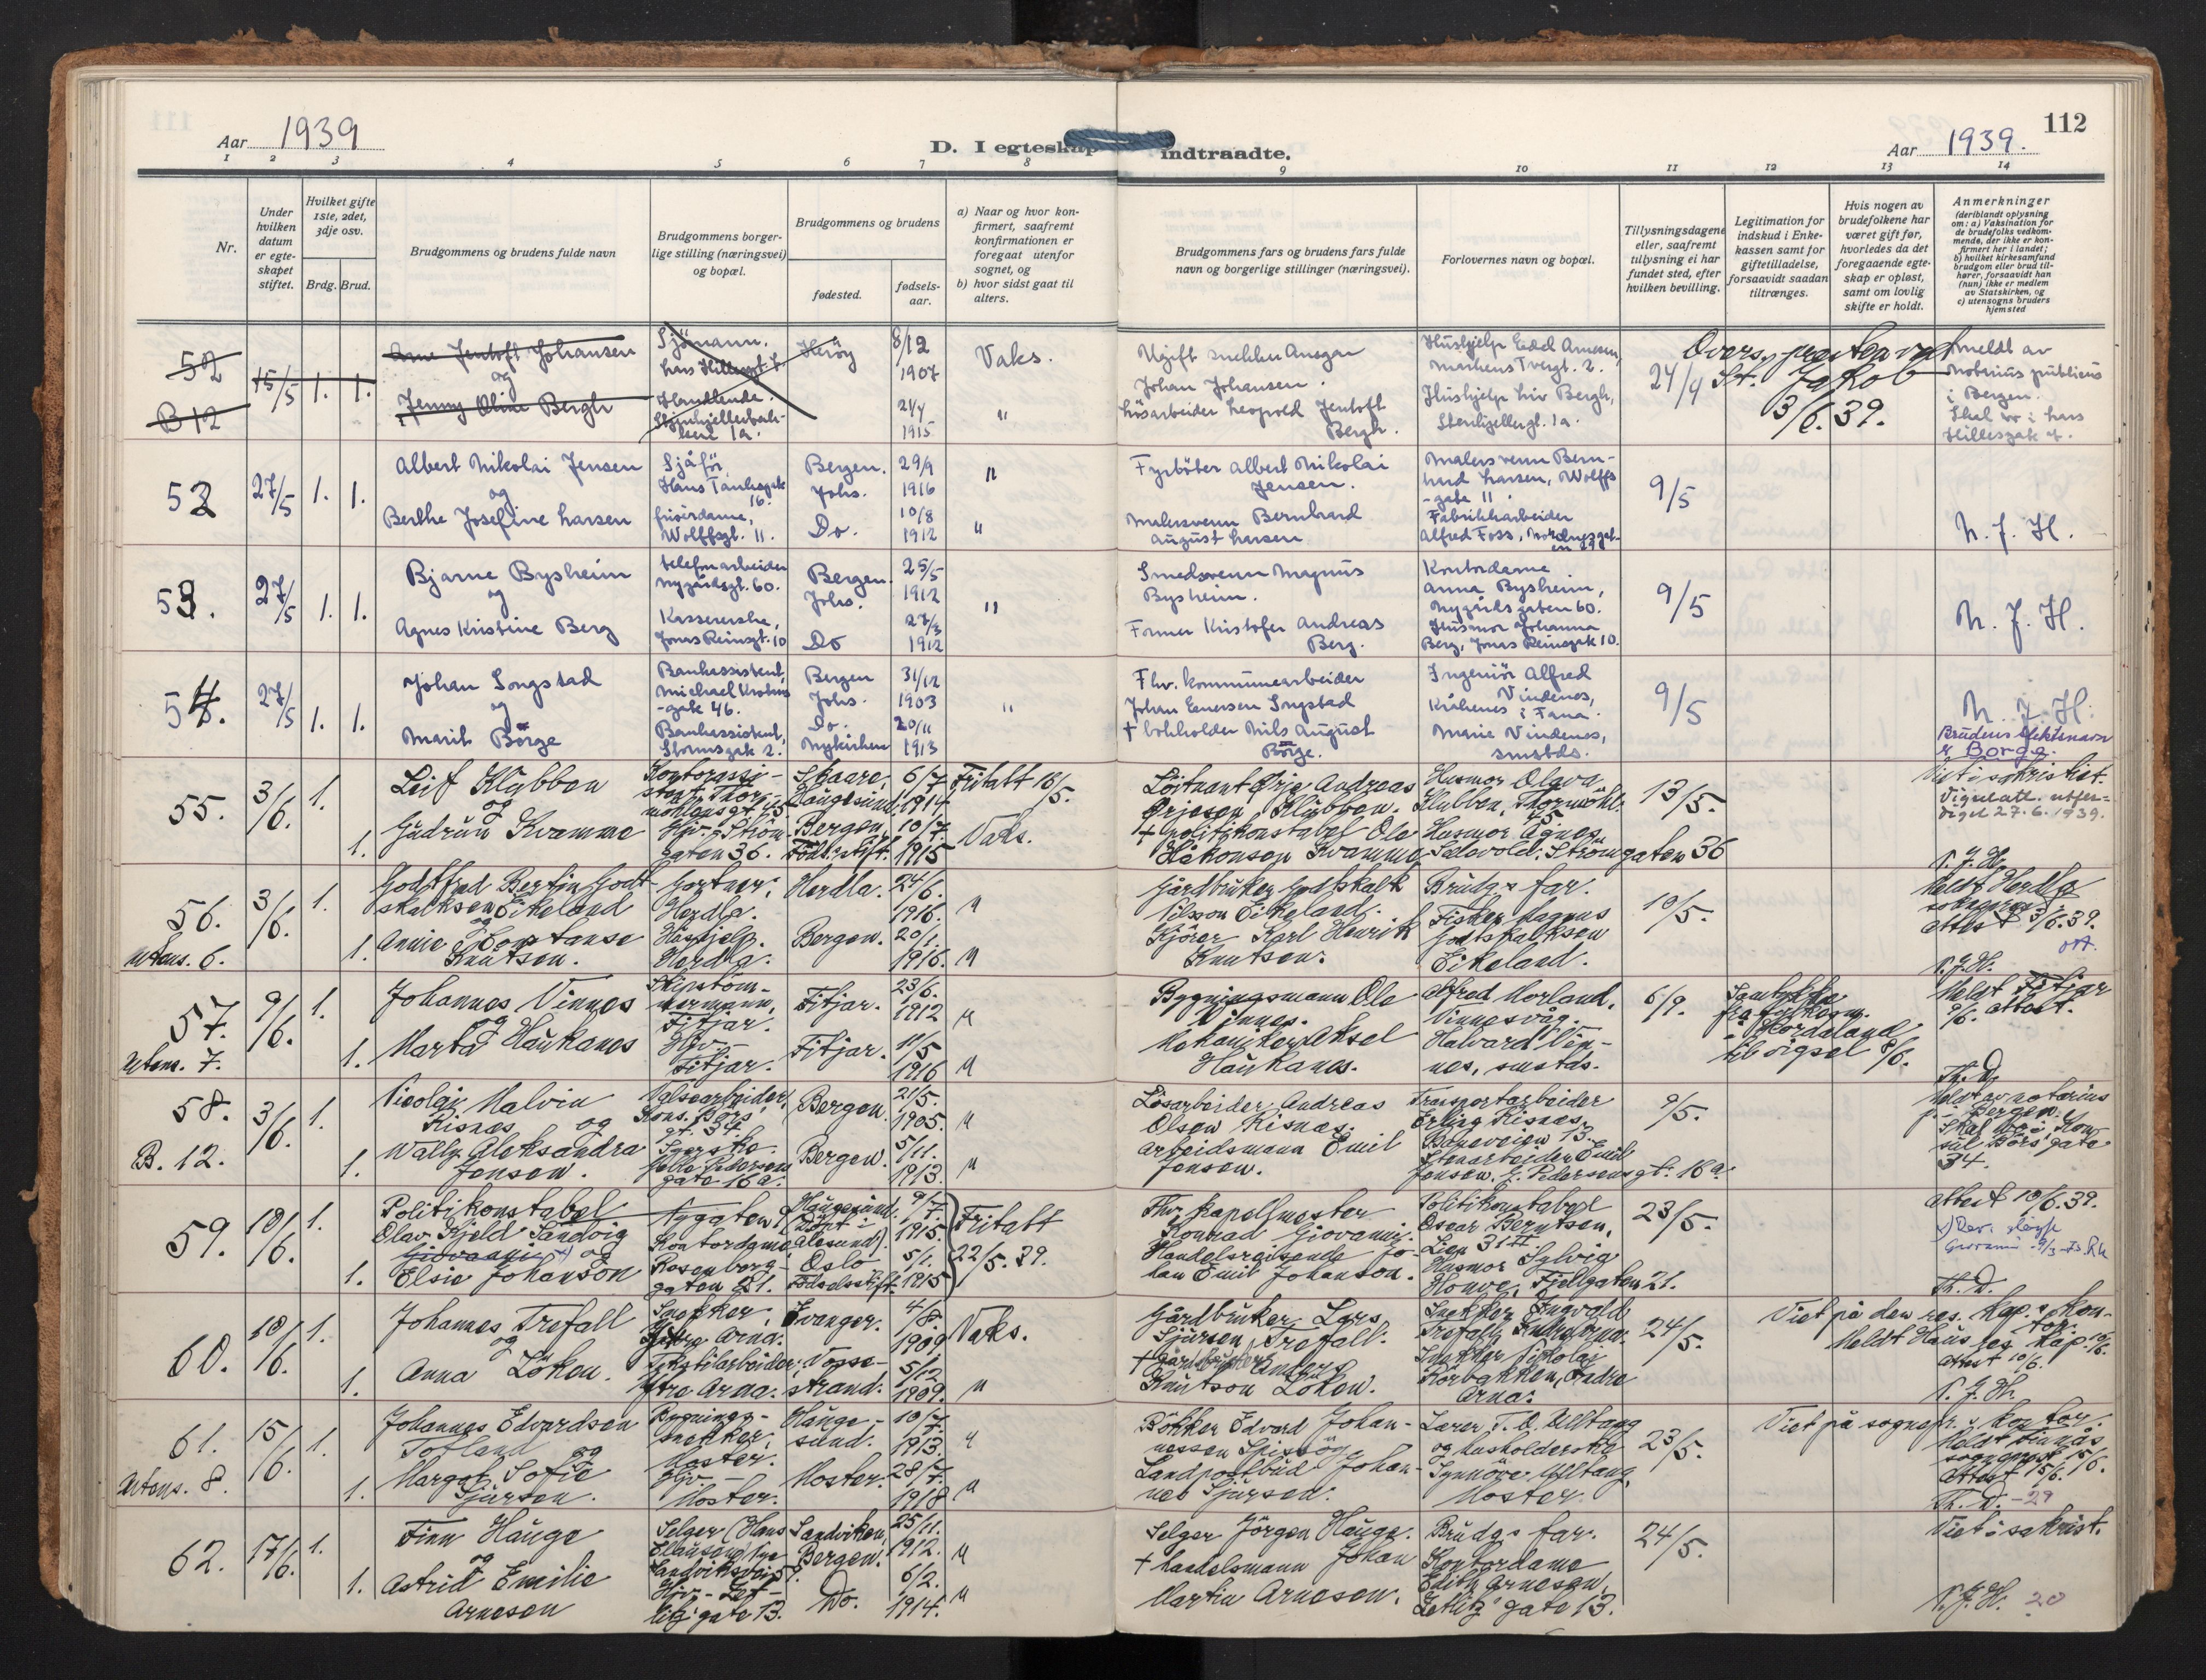 112
Aar 1939
D. I egteskap indtraadte.
Aar 1939.
1 2 3 4 5 6 7 8 9 10 11 12 13 14
Nr.
Under
hvilken
datum
er egte-
skapet
stiftet.
Hvilket gifte
1ste, 2det,
3dje osv.
Brdg. Brud.
Brudgommens og brudens fulde navn
Brudgommens borger-
lige stilling (næringsvei)
og bopæl.
Brudgommens og brudens
fødested.
fødsels-
aar.
a) Naar og hvor kon-
firmert, saafremt
konfirmationen er
foregaat utenfor
sognet, og
b) hvor sidst gaat til
alters.
Brudgommens fars og brudens fars fulde
navn og borgerlige stillinger (næringsvei).
Forlovernes navn og bopæl.
Tillysningsdagene
eller, saafremt
tillysning ei har
fundet sted, efter
hvilken bevilling.
Legitimation for
indskud i Enke-
kassen samt for
giftetilladelse,
forsaavidt saadan
tiltrænges.
Hvis nogen av
brudefolkene har
været gift før,
hvorledes da det
foregaaende egte-
skap er opløst,
samt om lovlig
skifte er holdt.
Anmerkninger
(deriblandt oplysning
om: a) Vaksination for
de brudefolks vedkom-
mende, der ikke er kon-
firmert her i landet;
b) hvilket kirkesamfund
brudgom eller brud til-
hører, forsaavidt han
(hun) ikke er medlem
av Statskirken, og
c) utensogns bruders
hjemsted
52
B 12
15/5 1. 1.
Arne Jentoft Johansen
og
Jenny Oline Bergh
Sjömann.
Handlende.
1a.
Herøy
8/12
1907
21/4
1915
Vaks.
"
Ugift snekker Ansgar
Johan Johansen.
Løsarbeider Leopold Jentoft
Bergh.
Hushjelp Edel Arnesen,
Markens Tvergt. 2.
Hushjelp Liv Bergh,
Stenkjellergt. 1a.
24/4
St. Jakob
3/6. 39.
Meldt av
Notarius publicus
i Bergen.
Skal bo i Lars
Hillesgate
52 27/5 1. 1.
Albert Nikolai Jensen
og
Berthe Josefine Larsen
Sjåför,
Hans Tanksgate
16.
frisørdame,
Wolffsgt. 11.
Bergen.
Johs.
Do.
29/9
1916
10/8
1912
"
"
Fyrbøter Albert Nikolai
Jensen.
Malersvenn Bernhard
August Larsen
Malersvenn Bern-
hard Larsen, Wolffs
-gate 11.
Fabrikkarbeider
Alfred Foss, Nordnesgat-
en 29
9/5
N. J. H.
53. 27/5 1. 1.
Bjarne Bysheim
og
Agnes Kristine Berg
telefonarbeider
Nygårdsgt. 60.
Kassererske,
Jonas Reinsgt. 10
Bergen.
Johs.
Do
25/5
1912
27/3
1912
"
Smedsvenn Magnus
Bysheim.
Former Kristofer Andreas
Berg.
Kontordame
Anna Bysheim,
Nygårdsgaten 60.
Husmor Johanna
Berg, Jonas Reinsgate 10.
9/5
N. J. H.
54. 27/5 1. 1.
Johan Songstad
og
Marit Börge
Bankassistent,
Michael Krohns
-gate 46.
Bankassistent,
Stormsgate 2.
Bergen
Johs.
Do.
Nykirken
31/12
1903
20/11
1913
"
Fhv. kommunearbeider
Johan Songstad
† bokholder Nils August
Börge.
Ingeniør Alfred
Vindenes,
Kråkenes i Fana.
Marie Vindenes,
smstds.
9/5
N. J. H.
Brudens slektsnavn
er Borge.
55. 3/6. 1.
1.
Leif Klubben
og
Gudrun Kvamme
Kontorassi-
stent, Thor-
møhlensgt. 45
Hjv. Ström-
gaten 36.
Skaare,
Haugesund
Bergen
Föds.stift.
6/7
1914
10/7
1915
Fritatt 16/5.
Vaks.
Löitnant Ørje Andreas
Ørjesen Klubben.
† politikonstabel Ole
Håkonson Kvamme
Husmor Olava
Klubben, Thormöhl.
45
Husmor Agnes
Selevold. Strömgaten 36
13/5.
Viet i sakristiet.
Vigselatt. utfer-
diget 27. 6. 1939.
N. J. H.
56. 3/6. 1.
utens. 6. 1.
Godtfred Bertin Godt-
skalksen Eikeland
og
Annie Konstanse
Knutsen.
Gartner.
Herdla.
Hushjelp.
Herdla.
Herdla.
Bergen.
24/6.
1916.
20/1.
1916.
"
"
Gårdbruker Godtskalk
Nilsson Eikeland.
Kjörer Karl Henrik
Knutsen.
Brudg.s far.
Fisker Magnus
Godtskalksen
Eikeland.
10/5.
Meldt Herdla
sokneprest
attest 3/6. 39.
N. J. H.
57. 9/6. 1.
Utens. 7. 1.
Johannes Vinnes
og
Marta Haukanes
Skipstöm-
mermann,
Fitjar.
Hjv.
Fitjar.
Fitjar.
Fitjar.
23/6.
1912
11/5
1916
"
"
Bygningsmann Ole
Vinnes.
Mekaniker Aksel
Haukanes.
Alfred Morland.
Vinnesvåg.
Halvard Vin-
nes, smstds.
6/9.
Samtykke
fra fylkesm.
i Hordaland
til vigsel 8/6.
Meldt Fitjar
9/6. attest.
Th. D.
58. 3/6. 1.
B. 12. 1.
Nicolai Malvin
Risnes og
Wally Aleksandra
Jensen.
Valsearbeider,
Kons. Börs'
gt. 34
Syerske
Jekte Pedersens
gate 16 a.
Bergen.
Bergen.
21/5.
1905.
5/11.
1913.
"
"
Lösarbeider Andreas
Olsen Risnes.
Arbeidsmann Emil
Jensen.
Transportarbeider
Erling Risnes,
Baneveien 13.
Stenarbeider Emil
Jensen, J. Pedersensgt. 16 a.
9/5.
Meldt av notarius
p. i Bergen.
Skal bo i Kon-
sul Börs' gate
34.
59. 10/6. 1.
1.
Politikonstabel
Olav Kjeld Sandvig
Giovanni x) og
Elsie Johanson
Nygaten
Kontordame
Rosenberg-
gaten 21.
Haugesund.
(Döpt i
Ålesund).
Oslo
Födselsstift.
9/7.
1915.
5/1.
1915
Fritatt
22/5. 39.
Fhv. kapellmester
Konrad Giovanni.
Handelsreisende Jo-
han Emil Johanson.
Politikonstabel
Oscar Berntsen,
Lien 31 II
Husmor Sylvia
Honve, Fjellgaten 21.
23/5.
attest 10/6. 39.
Th. D.
60. 10/6. 1.
1.
Johannes Trefall
og
Anna Löken.
Snekker,
Ytre Arna.
Tekstilarbeider,
Ytre Arna.
Evanger.
Vosse-
strand.
4/8.
1909.
5/12
1909.
Vaks.
"
Gårdbruker Lars
Sjursen Trefall.
† Gårdbruker Anders
Knutson Löken.
Snekker Ingvald
Trefall,
Snekker Nikolai
Korbakken, Indre
Arna.
24/5.
Viet på den res. kap.s kon-
tor.
Meldt Haus res. kap. 10/6.
attest 10/6.
N. J. H.
61. 15/6. 1.
Utens. 8. 1.
Johannes Edvardsen
Totland og
Margot Sofie
Sjursen.
Bygnings-
snekker,
Moster.
Hjv. –
Moster.
Hauge-
sund.
Moster.
10/7.
1913.
28/7.
1918
"
"
Bökker Edvard Johan-
nessen Spissöy.
Landpostbud Johan-
nes Sjursen.
Lærer T. O. Ulltang
og husholderske
Synnöve Ulltang,
Moster.
23/5.
Viet på sognepr.s kontor.
Meldt Finnås
sogneprest 15/6.
attest 15/6.
Th. D. - 29
62. 17/6. 1.
1.
Finn Hauge
og
Astrid Emilie
Arnesen
Selger (Hans
Hjv. – Zet-
litz' gate 13.
Sandviken,
Bergen.
Do.
25/11.
1912.
6/2.
1914.
"
"
Selger Jörgen Hauge.
† handelsmann Johan
Martin Arnesen.
Brudg.s far.
Kontordame
Edith Arnesen,
Zetlitz' gate 13.
24/5.
Viet i sakrist.
N. J. H. 20